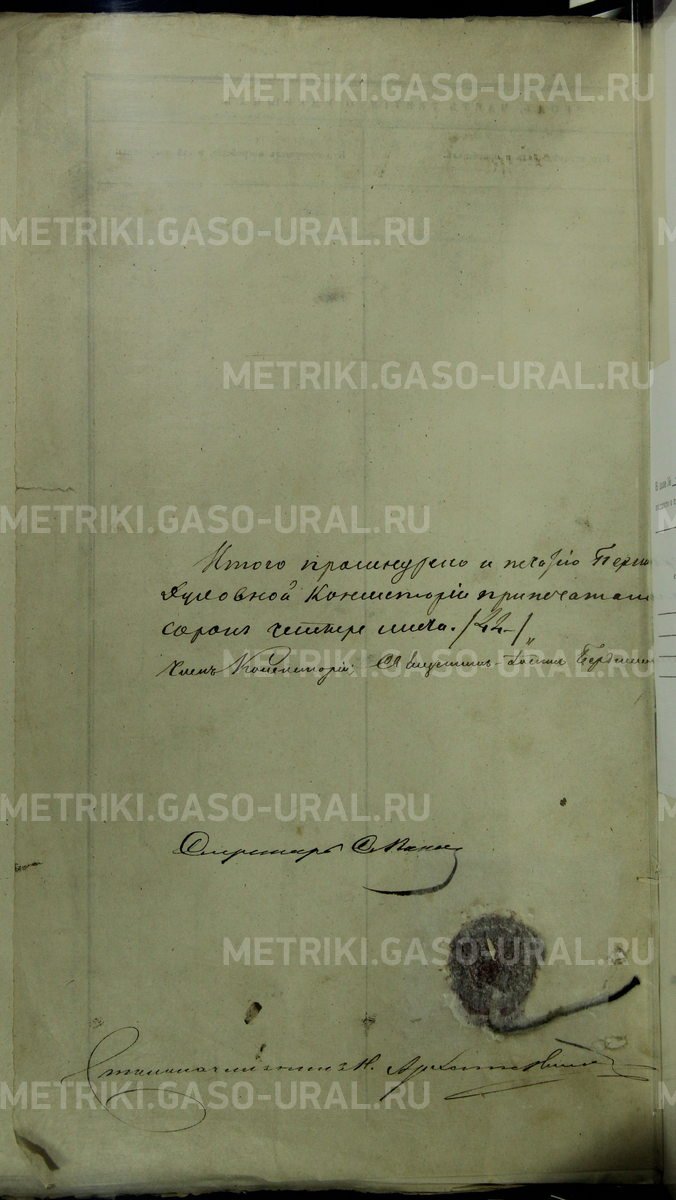 METRIKI.GASO-URAL.RU
METRIKI.GASO-URAL.RU
METRIKI.GASO-URAL.RU
METRIKI.GASO-URAL.RU
Итого прошнуровано и печатію Перм
Духовной Консисторіи припечатано
сорокъ четыре листа.
Членъ Консисторіи, Священникъ
METRIKI.GASO-URAL.RU
Секретарь
METRIKI.GASO-URAL.RU
Столоначальникъ Н.
METRIKI.GASO-URAL.RU